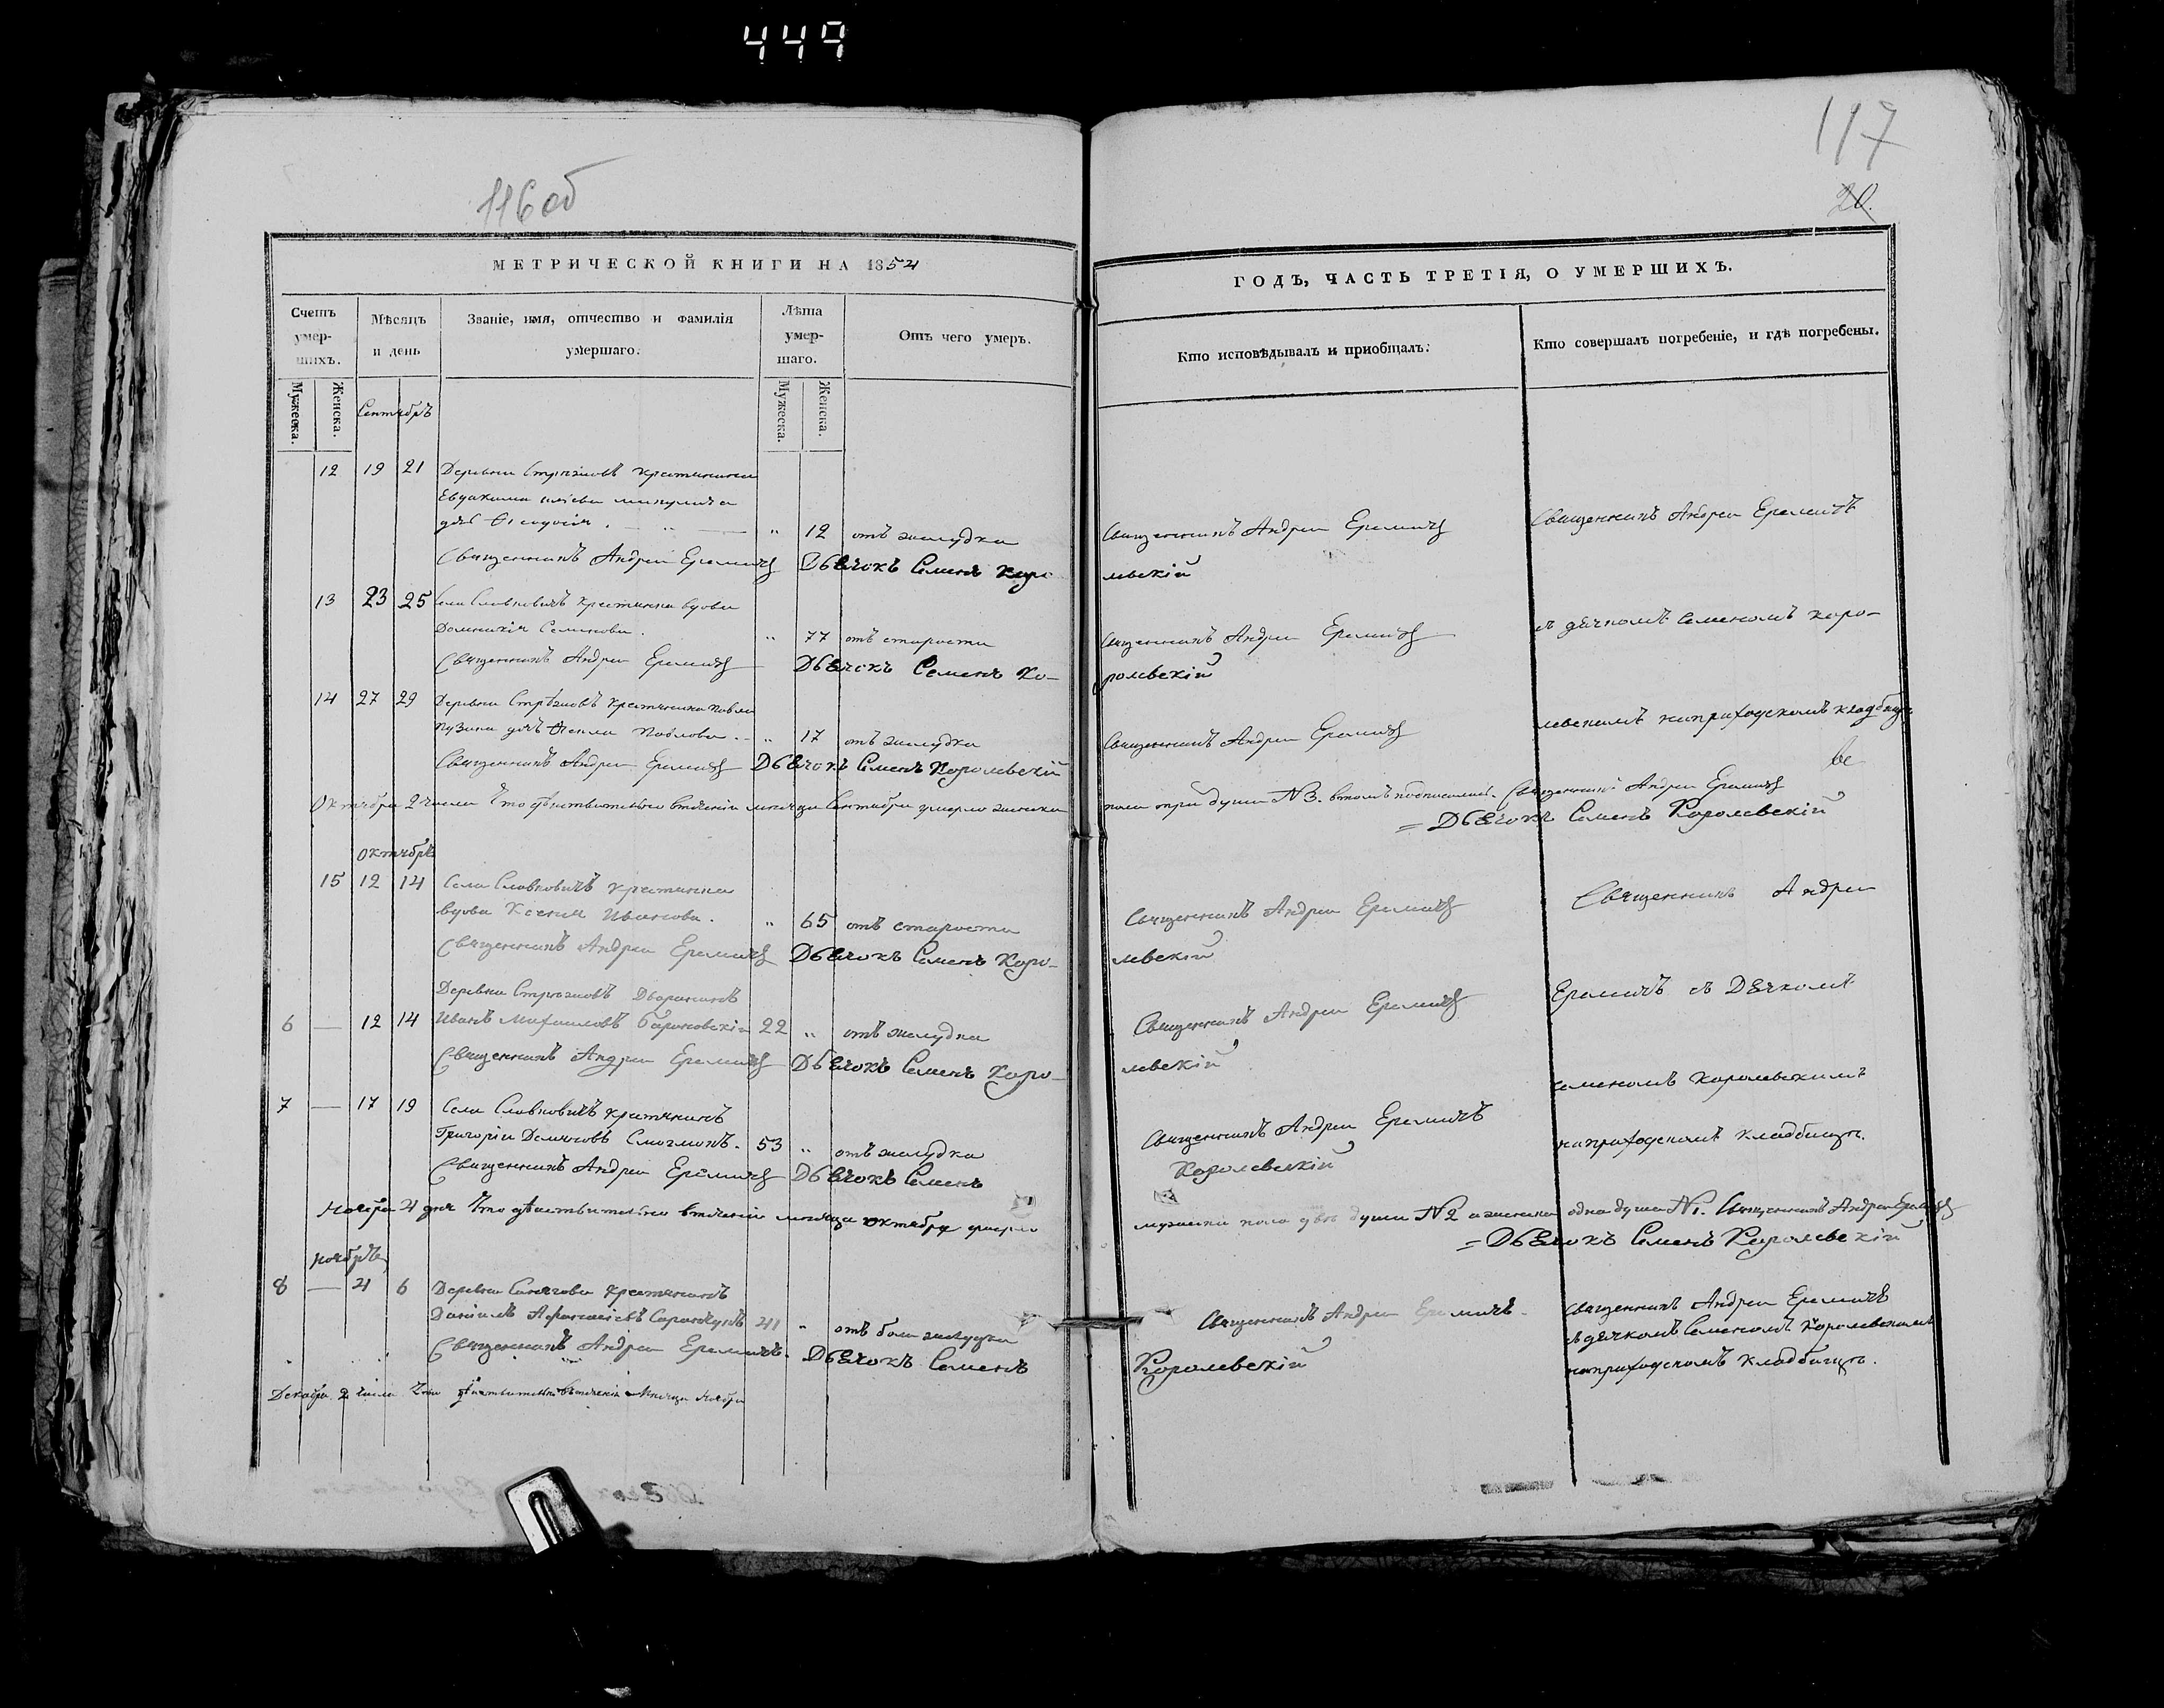 449
116 об
117
20.
МЕТРИЧЕСКОЙ КНИГИ НА 1854
ГОДЪ, ЧАСТЬ ТРЕТІЯ, О УМЕРШИХЪ.
Счетъ умер-шихъ.
Мѣсяцъ и день
Званіе, имя, отчество и фамилія умершаго.
Лѣта умер-шаго.
Отъ чего умеръ.
Кто исповѣдывалъ и приобщалъ.
Кто совершалъ погребеніе, и гдѣ погребены.
Мужеска.
Женска.
Мужеска.
Женска.
Сентябрь
12 19 21 Деревни крестьянина
дочь Ѳеодосія . „ 12 отъ желудка Священникъ Андрей Еремичъ Священникъ Андрей Еремичъ
Священникъ Андрей Еремичъ Дьячокъ Семенъ Коро левскій
13 23 25 Села Славковичъ крестьянка вдова
Домникія Семенова . „ 77 отъ старости Священникъ Андрей Еремичъ съ дьячкомъ Семеномъ Коро-
Священникъ Андрей Еремичъ Дьячокъ Семенъ Ко- ролевскій
14 27 29 Деревни крестьянина Павла
дочь Ѳекла Павлова . „ 17 отъ желудка Священникъ Андрей Еремичъ левскимъ на приходскомъ кладбищѣ
Священникъ Андрей Еремичъ Дьячокъ Семенъ Королевскій
Октября 2 числа Что дѣйствительно втеченіи мѣсяца Сентября умерло женска пола три души №3. въ томъ подписались. Священникъ Андрей Еремичъ
= Дьячокъ Семенъ Королевскій
Октябрь
15 12 14 Села Славковичъ крестьянка
вдова Ксенія Иванова . „ 65 отъ старости Священникъ Андрей Еремичъ Священникъ Андрей
Священникъ Андрей Еремичъ Дьячокъ Семенъ Коро- левскій
Деревни Дворянинъ
6 — 12 14 Иванъ Михаиловъ 22 „ отъ желудка Священникъ Андрей Еремичъ Еремичъ съ Дьячкомъ
Священникъ Андрей Еремичъ Дьячокъ Семенъ Коро- левскій
Семеномъ Королевскимъ
7 — 17 19 Села Славковичъ крестьянинъ
Григорій 53 „ отъ желудка Священникъ Андрей Еремичъ на приходскомъ кладбищѣ.
Священникъ Андрей Еремичъ Дьячокъ Семенъ Королевскій
Ноября 4 дня Что дѣйствительно втеченіи мѣсяца октября умерло мужеска пола двѣ души №2 а женска одна душа №1. Священникъ Андрей Еремичъ
= Дьячокъ Семенъ Королевскій
ноябрь
8 — 4 6 Деревни крестьянинъ
Даніилъ 41 „ отъ боли желудка Священникъ Андрей Еремичъ Священникъ Андрей Еремичъ
съ дьячкомъ Семеномъ Королевскимъ
Священникъ Андрей Еремичъ. Дьячокъ Семенъ Королевскій на приходскомъ кладбищѣ.
Декабря 2 числа Что дѣйствительно втеченіи мѣсяца Ноября